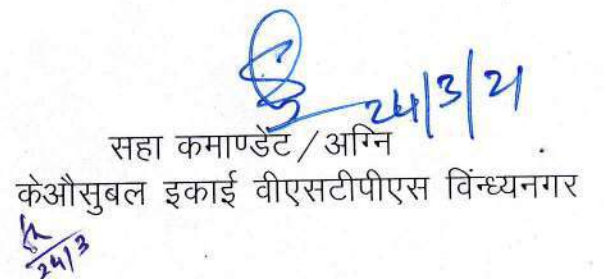 24/3/21
सहा कमाण्डेंट / अग्नि
केऔसुबल इकाई वीएसटीपीएस विंन्ध्यनगर
24/3